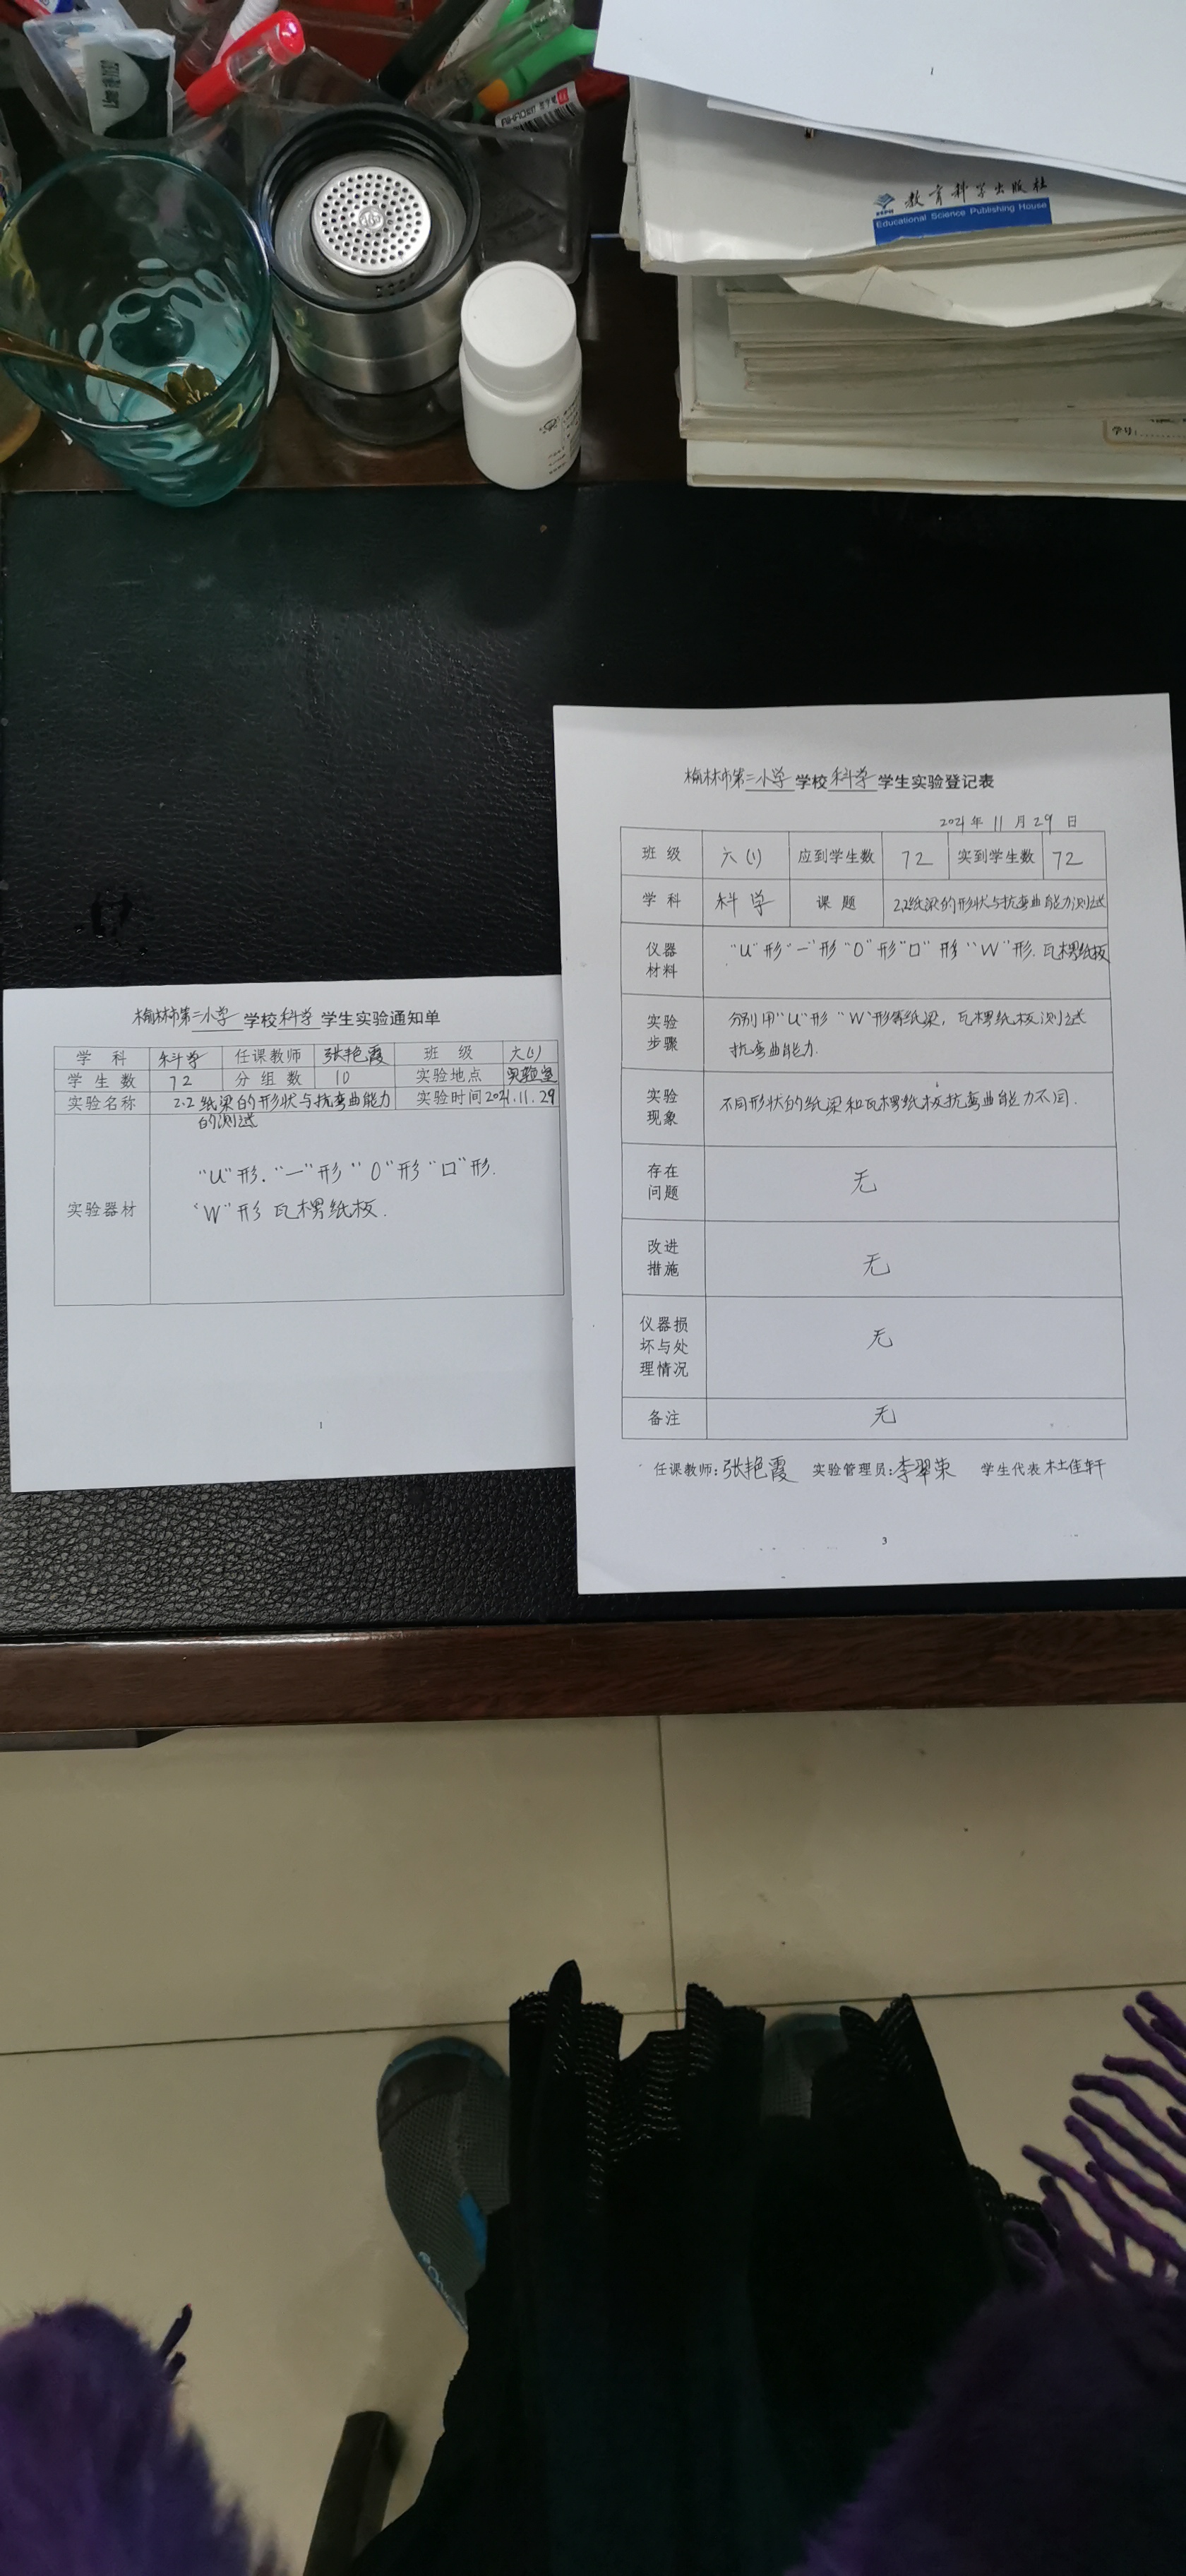 1
教育科学出版社
Educational Science Publishing House
学号:
榆林市第二小学学校科学学生实验登记表
2021年 11 月 29 日
班级 六(1) 应到学生数 72 实到学生数 72
学科 科学 课题 2.2纸梁的形状与抗弯曲能力测试
仪器材料 “U”形“一”形“O”形“口”形“W”形.瓦楞纸板
实验步骤 分别用“U”形“W”形等纸梁,瓦楞纸板测试
抗弯曲能力.
实验现象 不同形状的纸梁和瓦楞纸板抗弯曲能力不同.
存在问题 无
改进措施 无
仪器损坏与处理情况 无
备注 无
任课教师:张艳霞 实验管理员:李翠荣 学生代表 杜佳轩
3
榆林市第二小学学校科学学生实验通知单
学科 科学 任课教师 张艳霞 班级 六(1)
学生数 72 分组数 10 实验地点 实验室
实验名称 2.2纸梁的形状与抗弯曲能力 实验时间 2021.11.29
的测试
实验器材 “U”形.“一”形“O”形“口”形.
“W”形 瓦楞纸板.
1